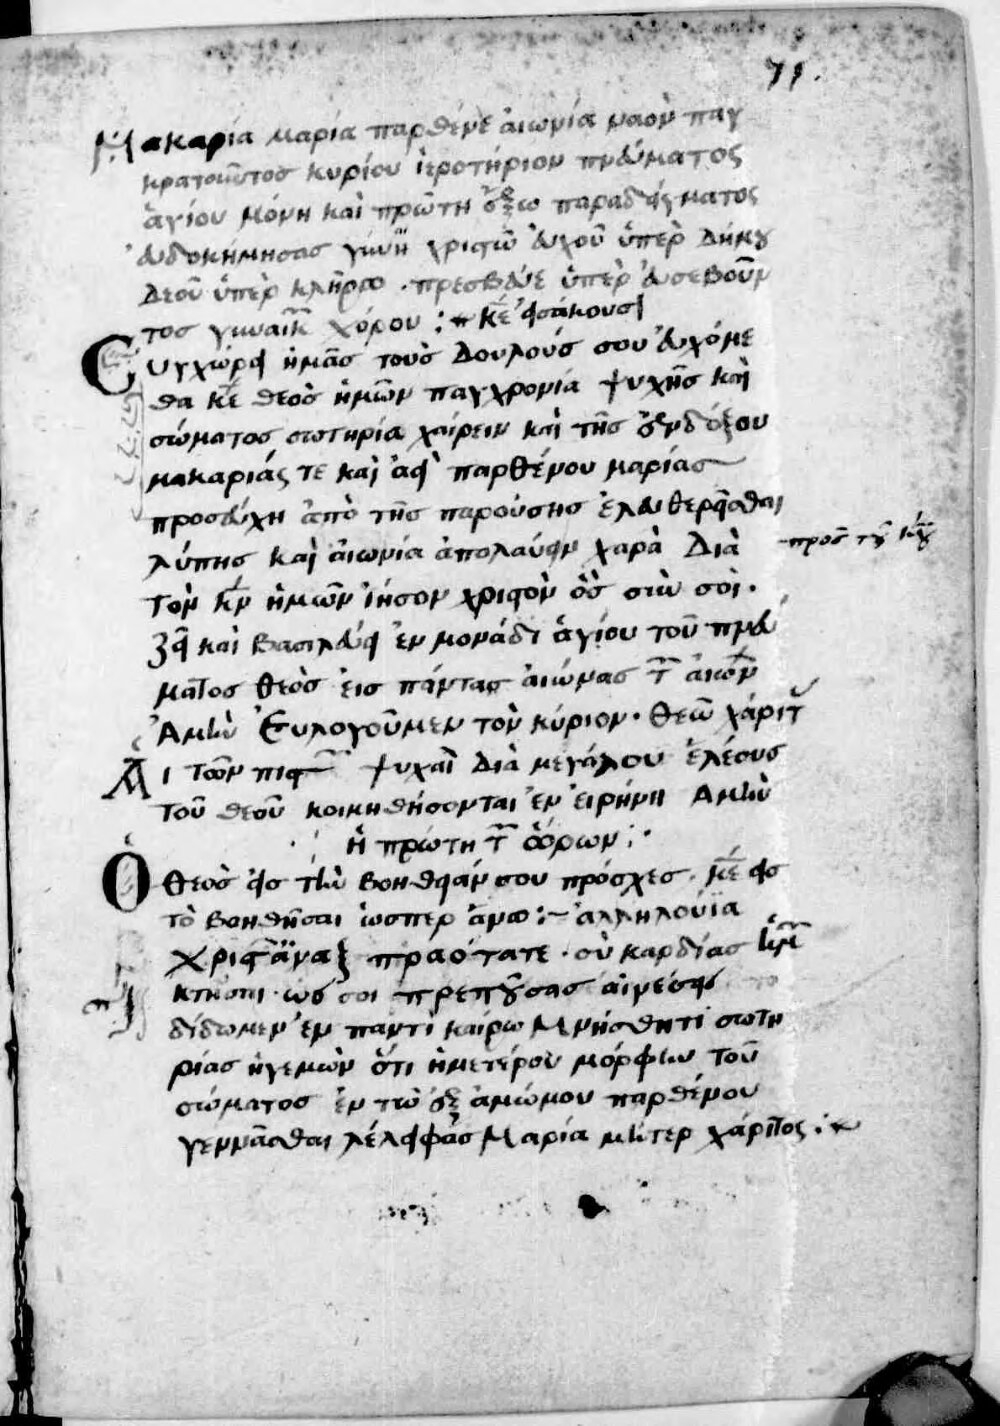 71.
Μακαρία μαρία παρθένε ἀιωνία ναὸν παγ
κρατοῦντος κυρίου ἱεροτήριον πνεύματος
ἁγίου μόνη καὶ πρώτη ἔξω παραδείγματος
ἐυδοκήμησας χριστῶ ἐυχοῦ ὑπὲρ δήμου
δεοῦ ὑπὲρ κλήρω · πρεσβέυε ὑπὲρ ἐυσεβοῦν
τος γυναικ χόρου : κε εἰσάκουσ
Συγχώρει ἡμᾶς τοὺς δουλούς σου ἐυχόμε
θα κε θεὸς ἡμῶν παγχρονία ψυχῆς καὶ
σώματος σωτηρία χαίρειν καὶ τῆς ἐνδόξου
μακαριάς τε καὶ ἀεὶ παρθένου μαρίας
προσέυχη ἀπὸ τῆς παρούσης ἐλευθερεῖσθαι
λύπης καὶ ἀιωνία ἀπολαύειν χαρὰ διὰ
-πρὸς τοῦ κυ
τὸν κν ἡμῶν ἰήσον χριστὸν ὃς σὺν σοὶ ·
ζεῖ καὶ βασιλέυει ἐν μονάδι ἁγίου τοῦ πνέυ
ματος θεὸς ἐις πάντας ἀιώνας τ ἀιων
Ἀμὴν Ἐυλογοῦμεν τὸν κύριον · θεῶ χάριτ
Ἁι τῶν πιστ ψυχαὶ διὰ μεγάλου ἐλέους
τοῦ θεοῦ κοιμηθήσονται ἐν ἐιρήνη Ἀμὴν
Ἡ πρώτη τ ὥρων :·
Ὁ θεὸς εἰς τὴν βοηθειάν σου πρόσχες · κε εἰς
τὸ βοηθῆσαι ὡσπερ ἄνω :~ ἀλληλούϊα
πραότατε · σὺ καρδίας ἡμ
κτῆσαι · ὡς σοι πρεπούσας ἀινέσεις
δίδωμεν ἐν παντὶ καίρω Μνήσθητι σωτη
ρίας ἡγεμὼν ὅτι ἡμετέρου μόρφὴν τοῦ
σώματος ἐν τῶ ἐξ ἀμώμου παρθένου
γεννᾶσθαι λέλειφάς Μαρία μῆτερ χάριτος :~